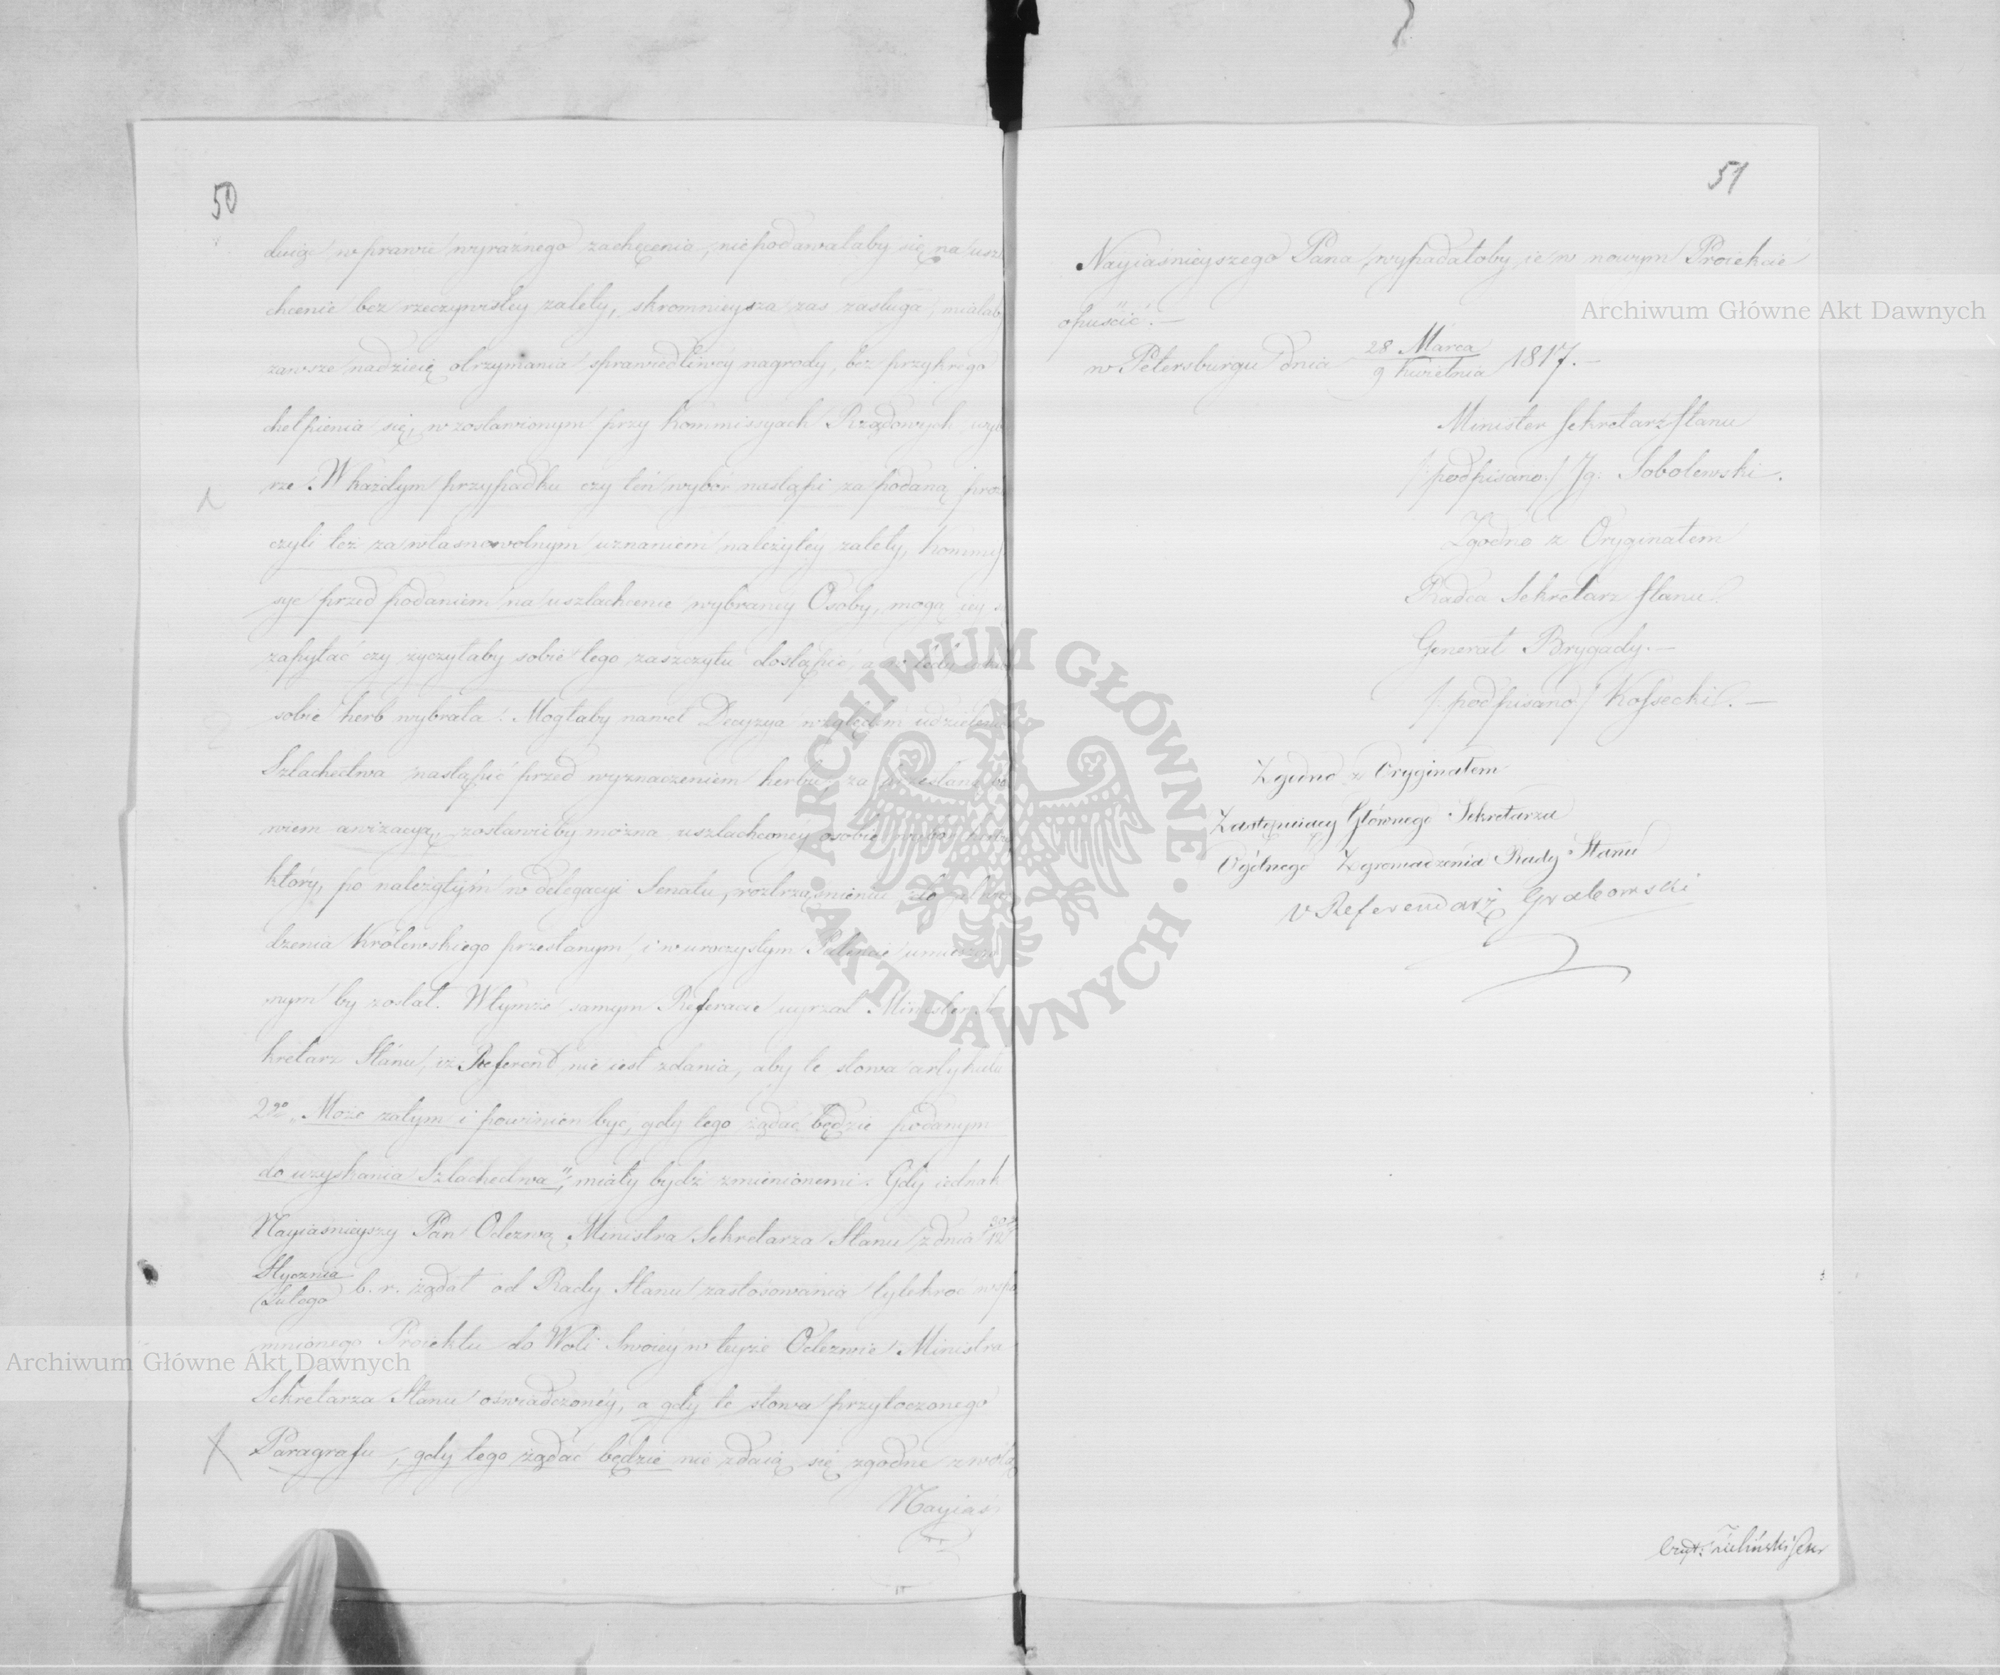 50
dług w prawie wyraźnego zachęcenia, niepodawałaby się na uszla
chcenie bez rzeczywistey zalety, skromnieysza zas zasługa, miałaby
zawsze nadzieię otrzymania sprawiedliwey nagrody, bez przykrego
chełpienia się, w zostawionym przy Kommissyach Rządowych wybo
rze. W każdym przypadku czy ten wybor nastąpi za podaną proś
czyli też za własnowolnym uznaniem należytey zalety, Kommis
sye przed podaniem na uszlachcenie wybraney Osoby, mogą iey się
zapytać czy życzyłaby sobie tego zaszczytu dostąpić, a w tedy
sobie herb wybrała. Mogłaby nawet Decyzya względem udzielenia
Szlachectwa nastąpić przed wyznaczeniem herbu, za przesłaną bo
wiem awizacyą, zostawićby można uszlachconey osobie
który, po należytym w delegacyi Senatu, roztrząśnieniu do
dzenia Królewskiego przesłanym, i w uroczystym Patencie umieszczo
nym by został. W tymże samym Referacie uyrzał Minister Se
kretarz Stanu, iż Referent nie iest zdania, aby te słowa artykułu
2go „Może zatym i powinien byc, gdy tego żądać będzie podanym
do uzyskania Szlachectwa", miały bydź zmienionemi. Gdy iednak
Nayiaśnieyszy Pan Odezwą Ministra Sekretarza Stanu z dnia
Stycznia
Lutego b. r. żądał od Rady Stanu zastosowania tylekroc wspo
mnionego Proiektu do Woli Swoiey w teyże Odezwie Ministra
Sekretarza Stanu oświadczoney, a gdy te słowa przytoczonego
Paragrafu, gdy tego żądać będzie nie zdaią się zgodne z wolą
Nayiaś
51
Nayiaśnieyszego Pana, wypadałoby ie w nowym Proiekcie
opuścić. —
w Petersburgu dnia 28 Marca / 9 Kwietnia 1817. —
Minister Sekretarz Stanu
/podpisano/ Ig: Sobolewski.
Zgodno z Oryginałem
Radca Sekretarz Stanu
Generał Brygady. —
/podpisano/ Kossecki. —
Zgodno z Oryginałem
Zastępuiący Głównego Sekretarza
Ogólnego Zgromadzenia Rady Stanu
Referendarz Grabowski
Zieliński
Archiwum Główne Akt Dawnych
Archiwum Główne Akt Dawnych
ARCHIWUM GŁÓWNE AKT DAWNYCH